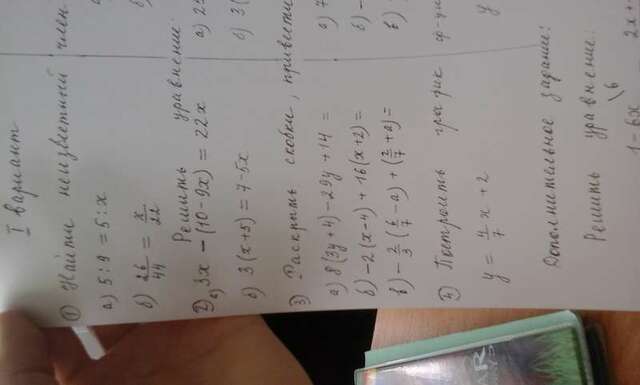 I вариант
① Найти неизвестный член
а) 5 : 9 = 5 : x
б) 26/44 = x/22
Решить уравнение
2) а) 3x - (10 - 9x) = 22x
а) 2
б) 3(x+5) = 7-5x
б) 3(
③ Раскрыть скобки, привести
а) 8(3y+4) - 29y + 14 =
а) 7
б) -2(x-4) + 16(x+2) =
б) -
в) - 2/3 (6/7 - a) + (2/7 + a) =
в)
④ Построить график ф-ции
y = 4/7 x + 2
y
Дополнительное задание:
Решить уравнение:
\6
1-6x
2x +